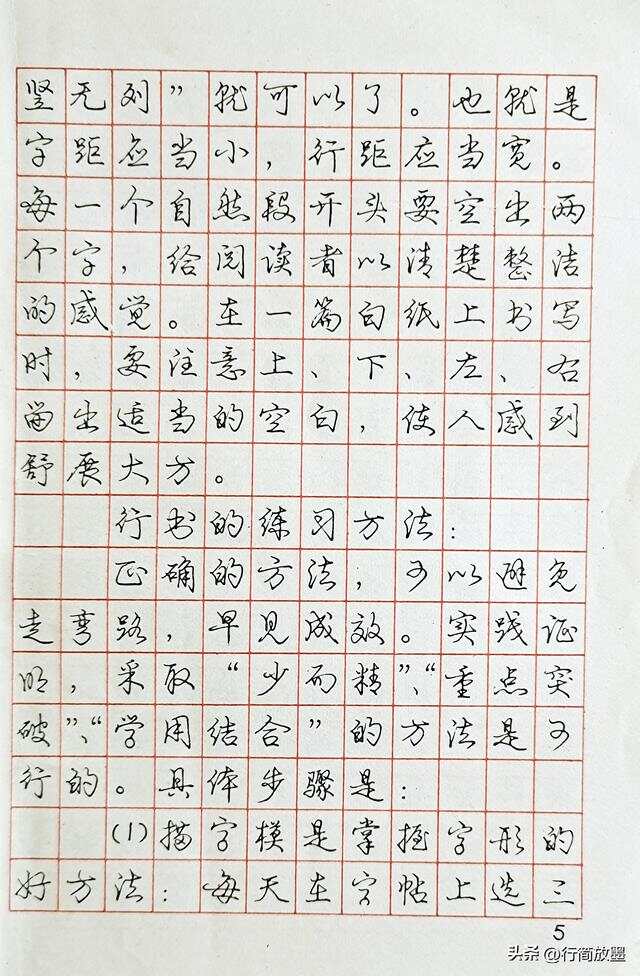 竖无列”就可以了。也就是
字距应当小，行距应当宽。
每一个自然段开头要空出两
个字，给阅读者以清楚整洁
的感觉。在一篇白纸上书写
时，要注意上、下、左、右
留出适当的空白，使人感到
舒展大方。
行书的练习方法：
正确的方法，可以避免
走弯路，早见成效。实践证
明，采取“少而精”、“重点突
破”、“学用结合”的方法是可
行的。具体步骤是：
(1)描字模是掌握字形的
好方法：每天在字帖上选三
5
头条@行简放墨